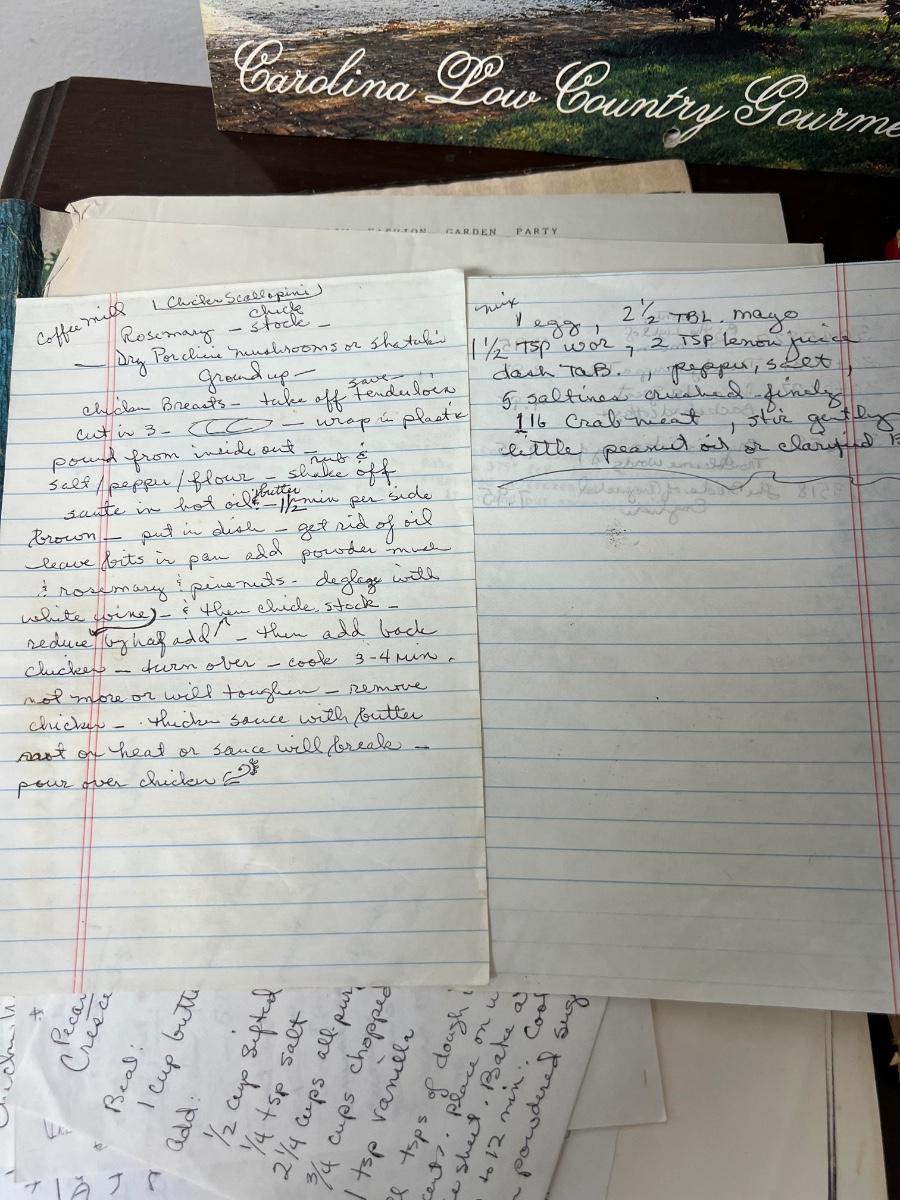 Carolina Low Country Gourme
GARDEN PARTY
Coffee mill
(Chicken Scallopini)
chick
Rosemary - stock -
- Dry Porchini mushrooms or shataki
Ground up -
save -
chicken Breasts - take off tenderloin
cut in 3 - - wrap in plastic
pound from inside out -
salt/pepper/flour - shake off
butter
saute in hot oil & - 1 1/2 min per side
brown - put in dish - get rid of oil
leave bits in pan add powder mush
& rosemary & pinenuts - deglaze with
white wine) - & then chick stock -
reduce by half add - then add back
chicken - turn over - cook 3-4 min.
not more or will toughen - remove
chicken - thicken sauce with butter
not on heat or sauce will break -
pour over chicken
mix
1 egg, 2 1/2 TBL. mayo
1 1/2 TSP wor, 2 TSP lemon juice
dash TAB., pepper, salt,
5 saltines crushed finely
1 lb crab meat, stir gently
little peanut oil or clarified B
Pecan
Cresce
Beat:
1 cup butte
add:
1/2 cup sifted
1/4 tsp salt
2 1/4 cups all pur
3/4 cups chopped
1 tsp vanilla
tsps of dough
place on u
sheet. Bake a
to 12 min. Coo
powdered sug